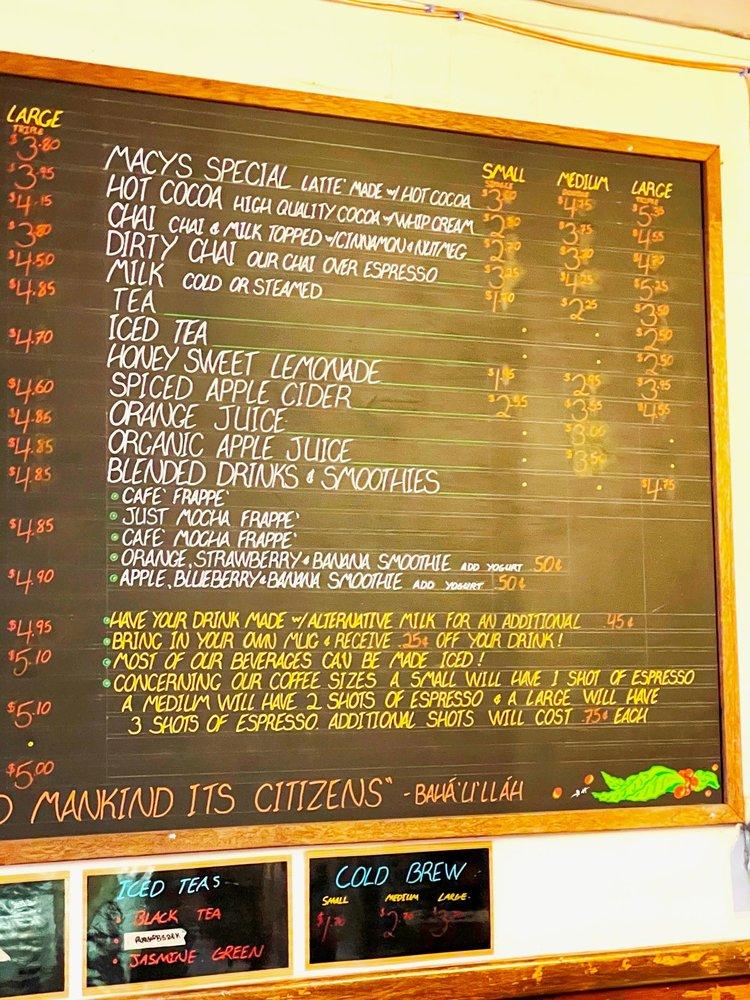 LARGE
TRIPLE
$3.80
$3.95
$4.15
$4.50
$4.85
$4.70
$4.60
$4.85
$4.85
$4.85
$4.85
$4.90
$4.95
$5.10
$5.10
$5.00
SMALL MEDIUM LARGE
SINGLE TRIPLE
MACYS SPECIAL LATTE' MADE W/ HOT COCOA $4.75
HOT COCOA HIGH QUALITY COCOA W/ WHIP CREAM $3.75 $4.55
CHAI CHAI & MILK TOPPED W/ CINNAMON & NUTMEG
DIRTY CHAI OUR CHAI OVER ESPRESSO $3.25 $4.25 $5.25
MILK COLD OR STEAMED $2.25
TEA $2.50
ICED TEA $2.50
HONEY SWEET LEMONADE $1.95 $2.95 $3.95
SPICED APPLE CIDER $2.95 $3.55 $4.55
ORANGE JUICE
ORGANIC APPLE JUICE
BLENDED DRINKS & SMOOTHIES $4.75
CAFE' FRAPPE'
JUST MOCHA FRAPPE'
CAFE' MOCHA FRAPPE'
ORANGE, STRAWBERRY & BANANA SMOOTHIE ADD YOGURT .50¢
APPLE, BLUEBERRY & BANANA SMOOTHIE ADD YOGURT .50¢
HAVE YOUR DRINK MADE W/ ALTERNATIVE MILK FOR AN ADDITIONAL .45¢
BRING IN YOUR OWN MUG & RECEIVE .25¢ OFF YOUR DRINK!
MOST OF OUR BEVERAGES CAN BE MADE ICED!
CONCERNING OUR COFFEE SIZES A SMALL WILL HAVE 1 SHOT OF ESPRESSO
A MEDIUM WILL HAVE 2 SHOTS OF ESPRESSO & A LARGE WILL HAVE
3 SHOTS OF ESPRESSO. ADDITIONAL SHOTS WILL COST .75¢ EACH
MANKIND ITS CITIZENS" - BAHÁ'U'LLÁH
ICED TEAS
BLACK TEA
JASMINE GREEN
COLD BREW
SMALL MEDIUM LARGE